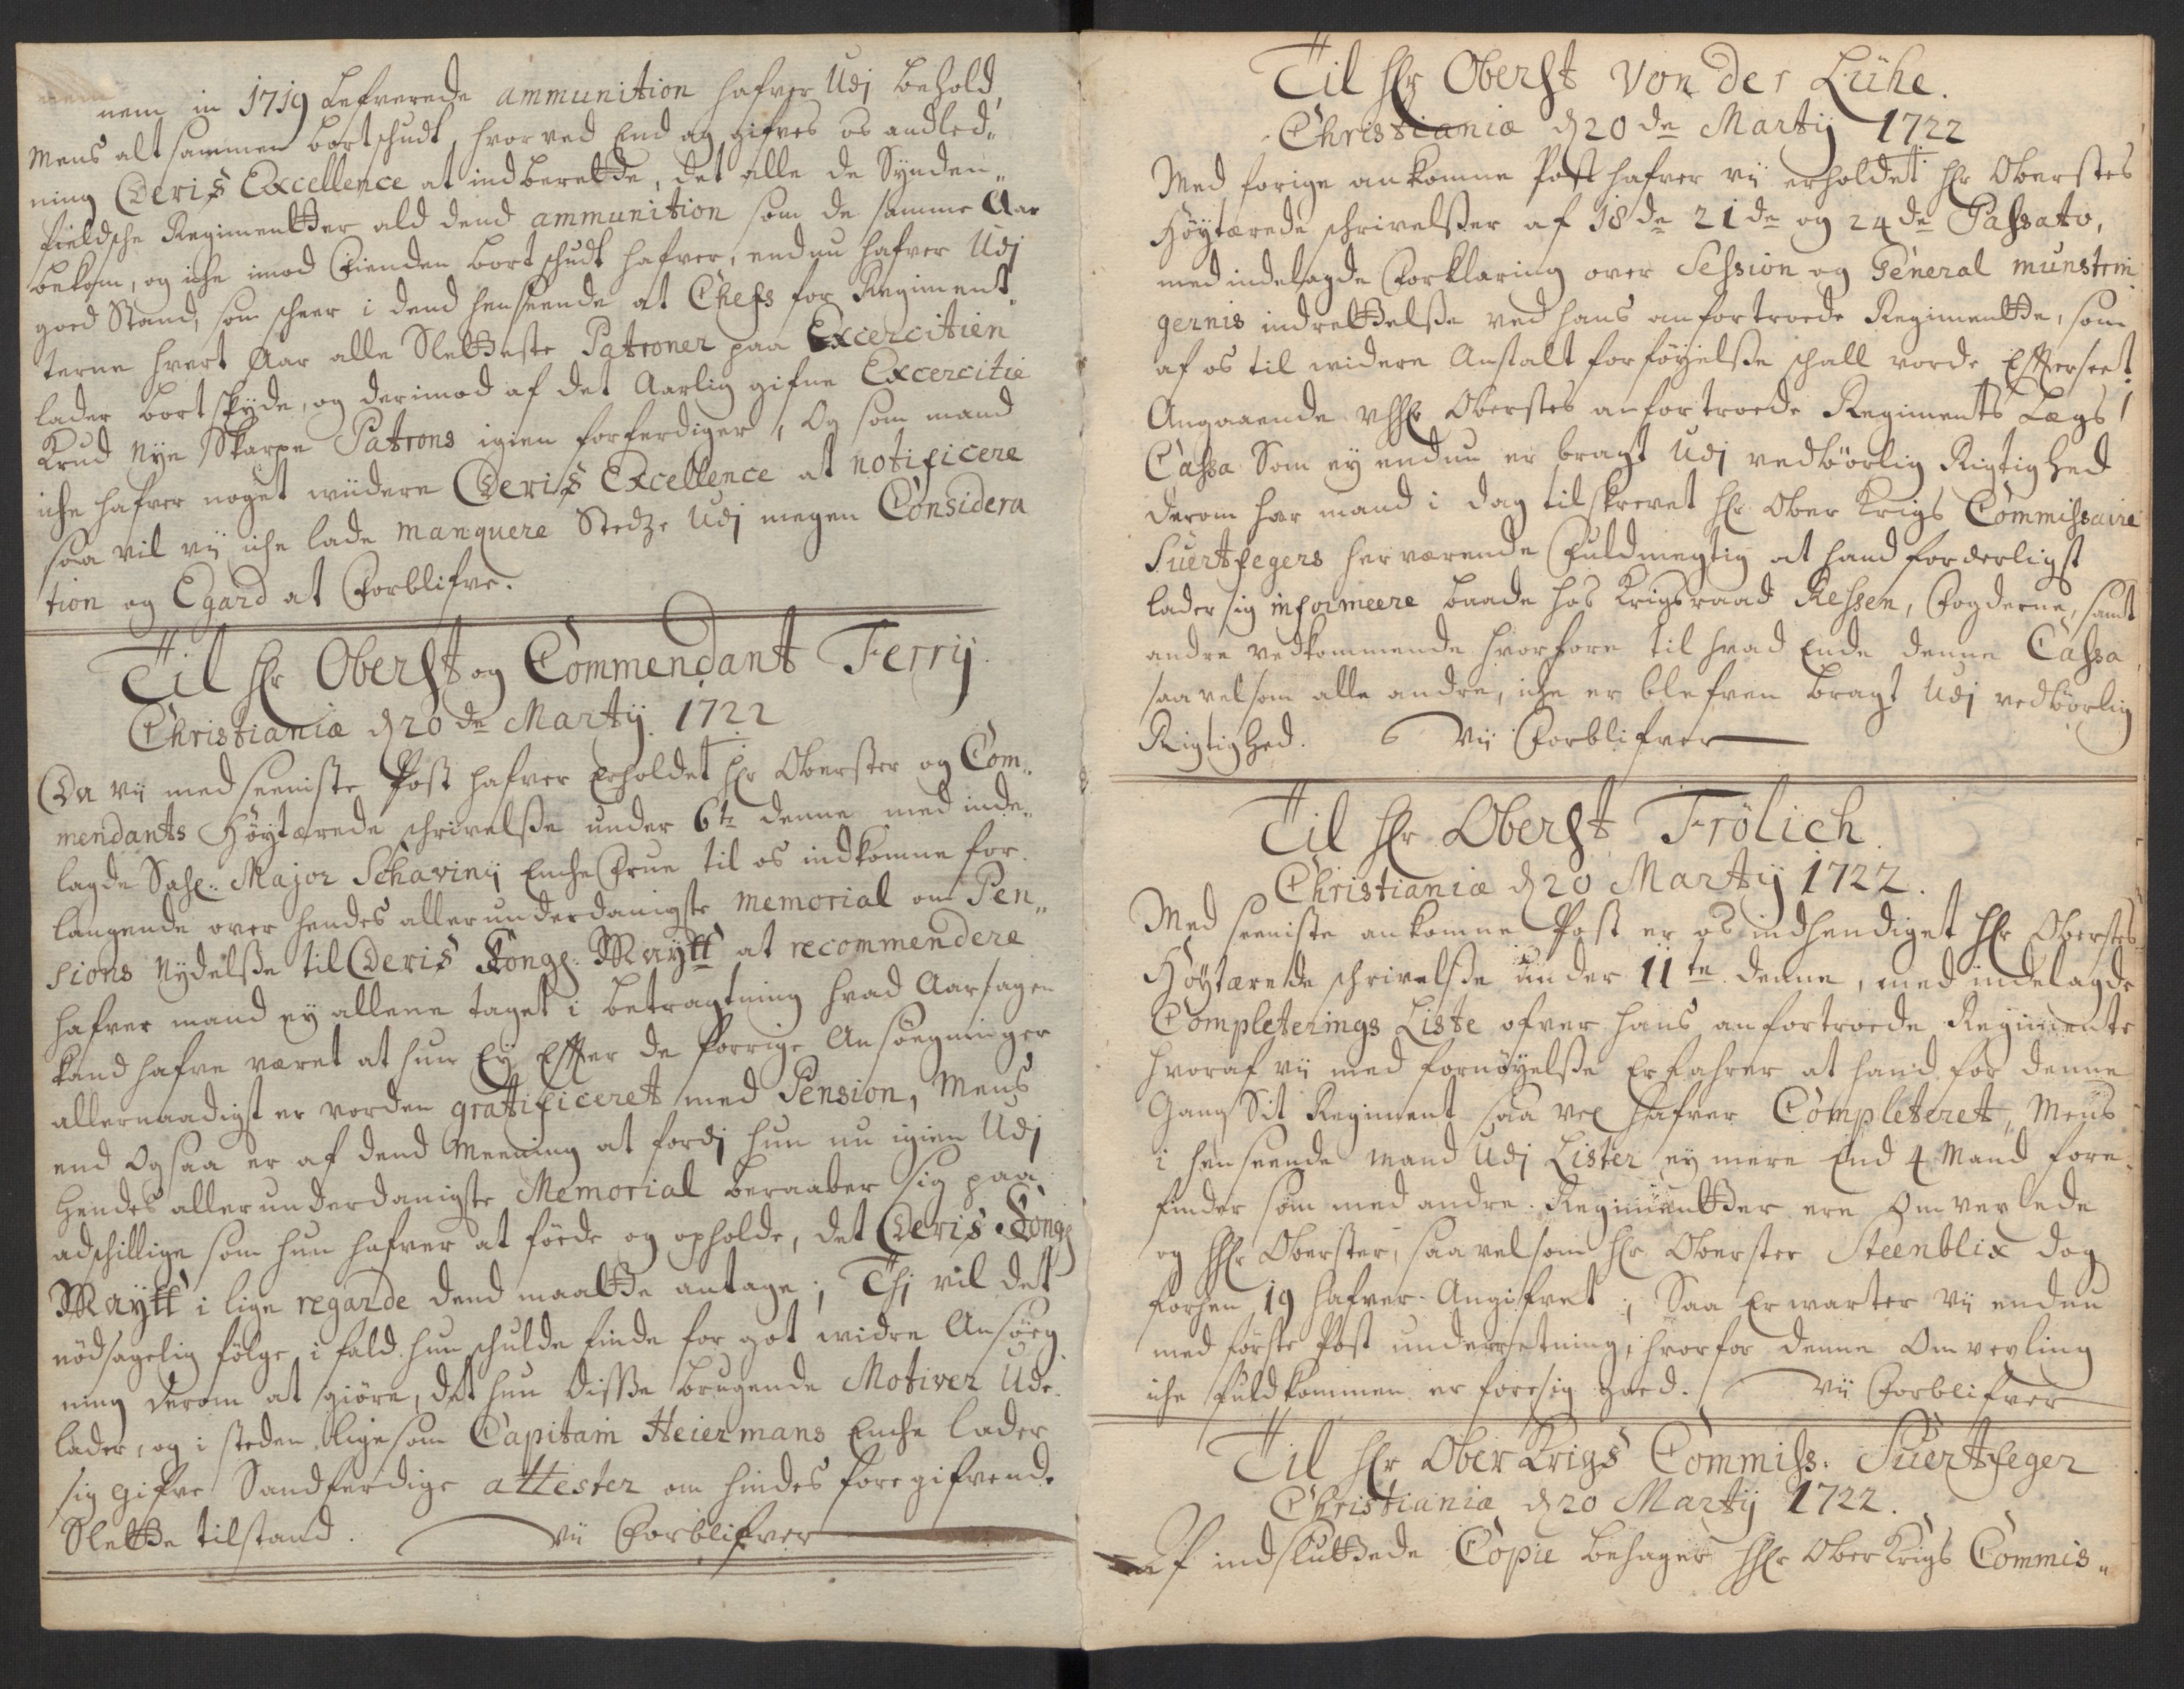 nem in 1719 Lefverede ammunition hafver Udj behold,
Mens altsammen bortschudt, hvorved End og gifves os andled„
ning Deris Excellence at indberette, det alle de Synden„
fieldsche Regimentter ald dend ammunition som de samme Aar
bekom, og iche imod Fienden bortschudt hafver, endnu hafver Udj
goed Stand, som scheer i dend henseende at Chefs for Regiment„
terne hvert Aar alle Sletteste Patroner paa Excercitien
lader bort skyde, og derimod af det Aarlig gifne Excercitie
Krud Nye Skarpe Patrons igien forferdiger, Og som mand
iche hafver noget widere Deris Excellence at notificere
saa vil vij iche lade manquere Stedze Udj megen Considera
tion og Egard at Forblifve.
Til Hr Oberst og Commendant Ferry
Christiania d 20de Martij 1722
Da vij med seeniste Post hafver Erholdet Hr Oberster og Com„
mendants Höytærede schrivelsse under 6te denne med inde„
lagde Sahl: Major Schaviny Enche Frue til os indkomne for„
langende over hendes allerunderdanigste memorial om Pen„
sions Nydelsse til Deris Kongl: Maytt at recommendere
hafver mand ey allene taget i betragtning hvad Aarsagen
kand hafve været at hun Ey Effter de forrige Ansögninger
allernaadigst er vorden gratificeret med Pension, Mens
end Ogsaa er af dend Meening at fordj hun nu igien Udj
hendes allerunderdanigste Memorial beraaber sig paa
adschillige som hun hafver at föede og opholde, det Deris Kongl
Maytt i lige regarde dend maatte antage; Thj vil det
nödsagelig fölge i fald hun schulde finde for got widre Ansög
ning derom at giöre, det hun disse brugende Motiver Ude„
lader, og i steden ligesom Capitain Heiermans Enche lader
sig gifve Sandferdige attester om hindes foregifvende
Slette tilstand. Vij Forblifver
Til Hr Oberst Von der Lühe.
Christiania d 20de Martij 1722
Med forige ankomne Post hafver vij erholdet Hr Oberstes
Höytærede schrivelsser af 18de 21de og 24de Passato,
med indelagde Forklaring over Session og General munstrin
gernis indrettelsse ved hans anfortroede Regimentte, som
af os til widere Anstalt forföyelsse schall vorde Effterseet.
Angaaende Hr Oberstes anfortroede Regiments Lægs
Cassa Som ey endnu er bragt Udj vedbörlig Rigtighed
derom har mand i dag tilskrevet Hr Ober Krigs Commissaire
Suertfegers herværende Fuldmegtig at hand forderligst
lader sig informeere baade hos Krigsraad Ressen, Fogderne, samt
andre vedkommende hvorfore til hvad Ende denne Cassa,
saavelsom alle andre, iche er blefven bragt Udj vedbörlig
Rigtighed. Vij Forblifver
Til Hr Oberst Frölich
Christiania d 20 Martij 1722.
Med seeniste ankomne Post er os indhendiget Hr Oberstes
Höytærede schrivelsse under 11te denne, med indelagde
Completerings Liste ofver hans anfortroede Regimente
hvoraf vij med fornöyelsse Erfahrer at hand for denne
Gang Sit Regiment saa vel hafver Completeret, Mens
i henseende mand Udj Lister ey mere End 4 Mand fore„
finder som med andre Regimentter ere Omvexlede
og Hr Oberster, saavelsom Hr Oberster Steenblix dog
forhen 19 hafver Angifvet; Saa Erwarter vij endnu
med förste Post underretning, hvorfor denne Omvexling
iche fuldkommen er foresig gaaed. Vij Forblifver
Til Hr Ober Krigs Commiss: Suertfeger
Christiania d 20 Martij 1722.
Af indsluttede Copie behager Hr Ober Krigs Commis„